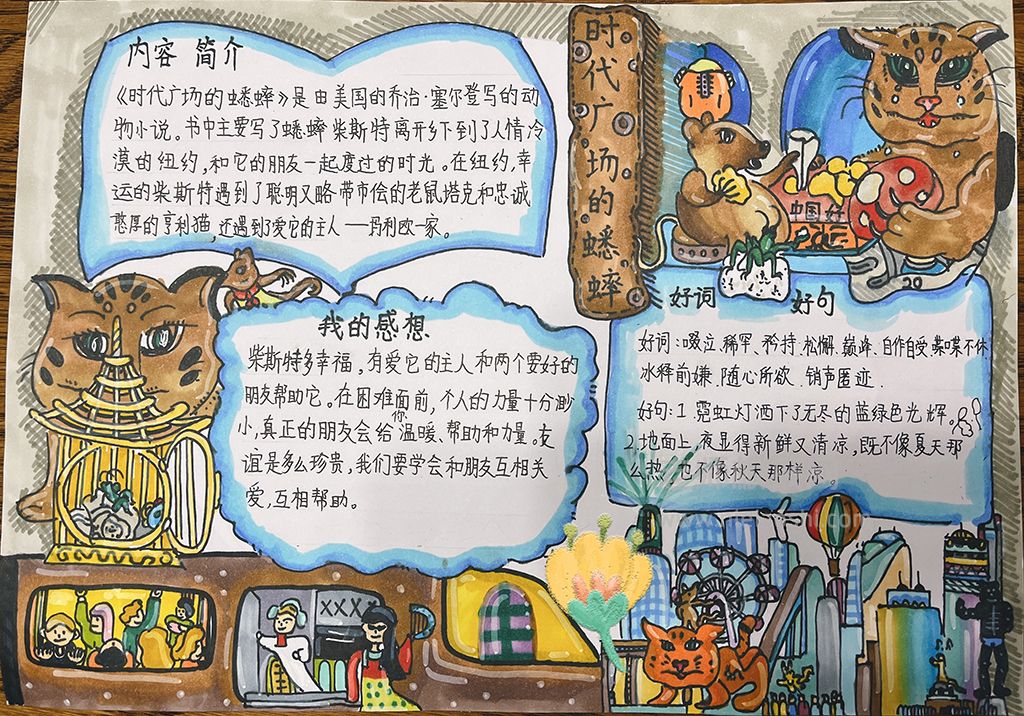 内容 简介
《时代广场的蟋蟀》是由美国的乔治·塞尔登写的动
物小说。书中主要写了蟋蟀柴斯特离开乡下到了人情冷
漠的纽约,和它的朋友一起度过的时光。在纽约,幸
运的柴斯特遇到了聪明又略带市侩的老鼠塔克和忠诚
憨厚的亨利猫,还遇到爱它的主人——玛利欧一家。
时代广场的蟋蟀
中国好
20
我的感想
柴斯特多幸福,有爱它的主人和两个要好的
朋友帮助它。在困难面前,个人的力量十分渺
小,真正的朋友会给你温暖、帮助和力量。友
谊是多么珍贵,我们要学会和朋友互相关
爱,互相帮助。
好词 好句
好词:啜立、稀罕、矜持、松懈、巅峰、自作自受 喋喋不休
冰释前嫌、随心所欲、销声匿迹.
好句:1 霓虹灯洒下了无尽的蓝绿色光辉,
2.地面上,夜显得新鲜又清凉,既不像夏天那
么热,也不像秋天那样凉。
XXXX